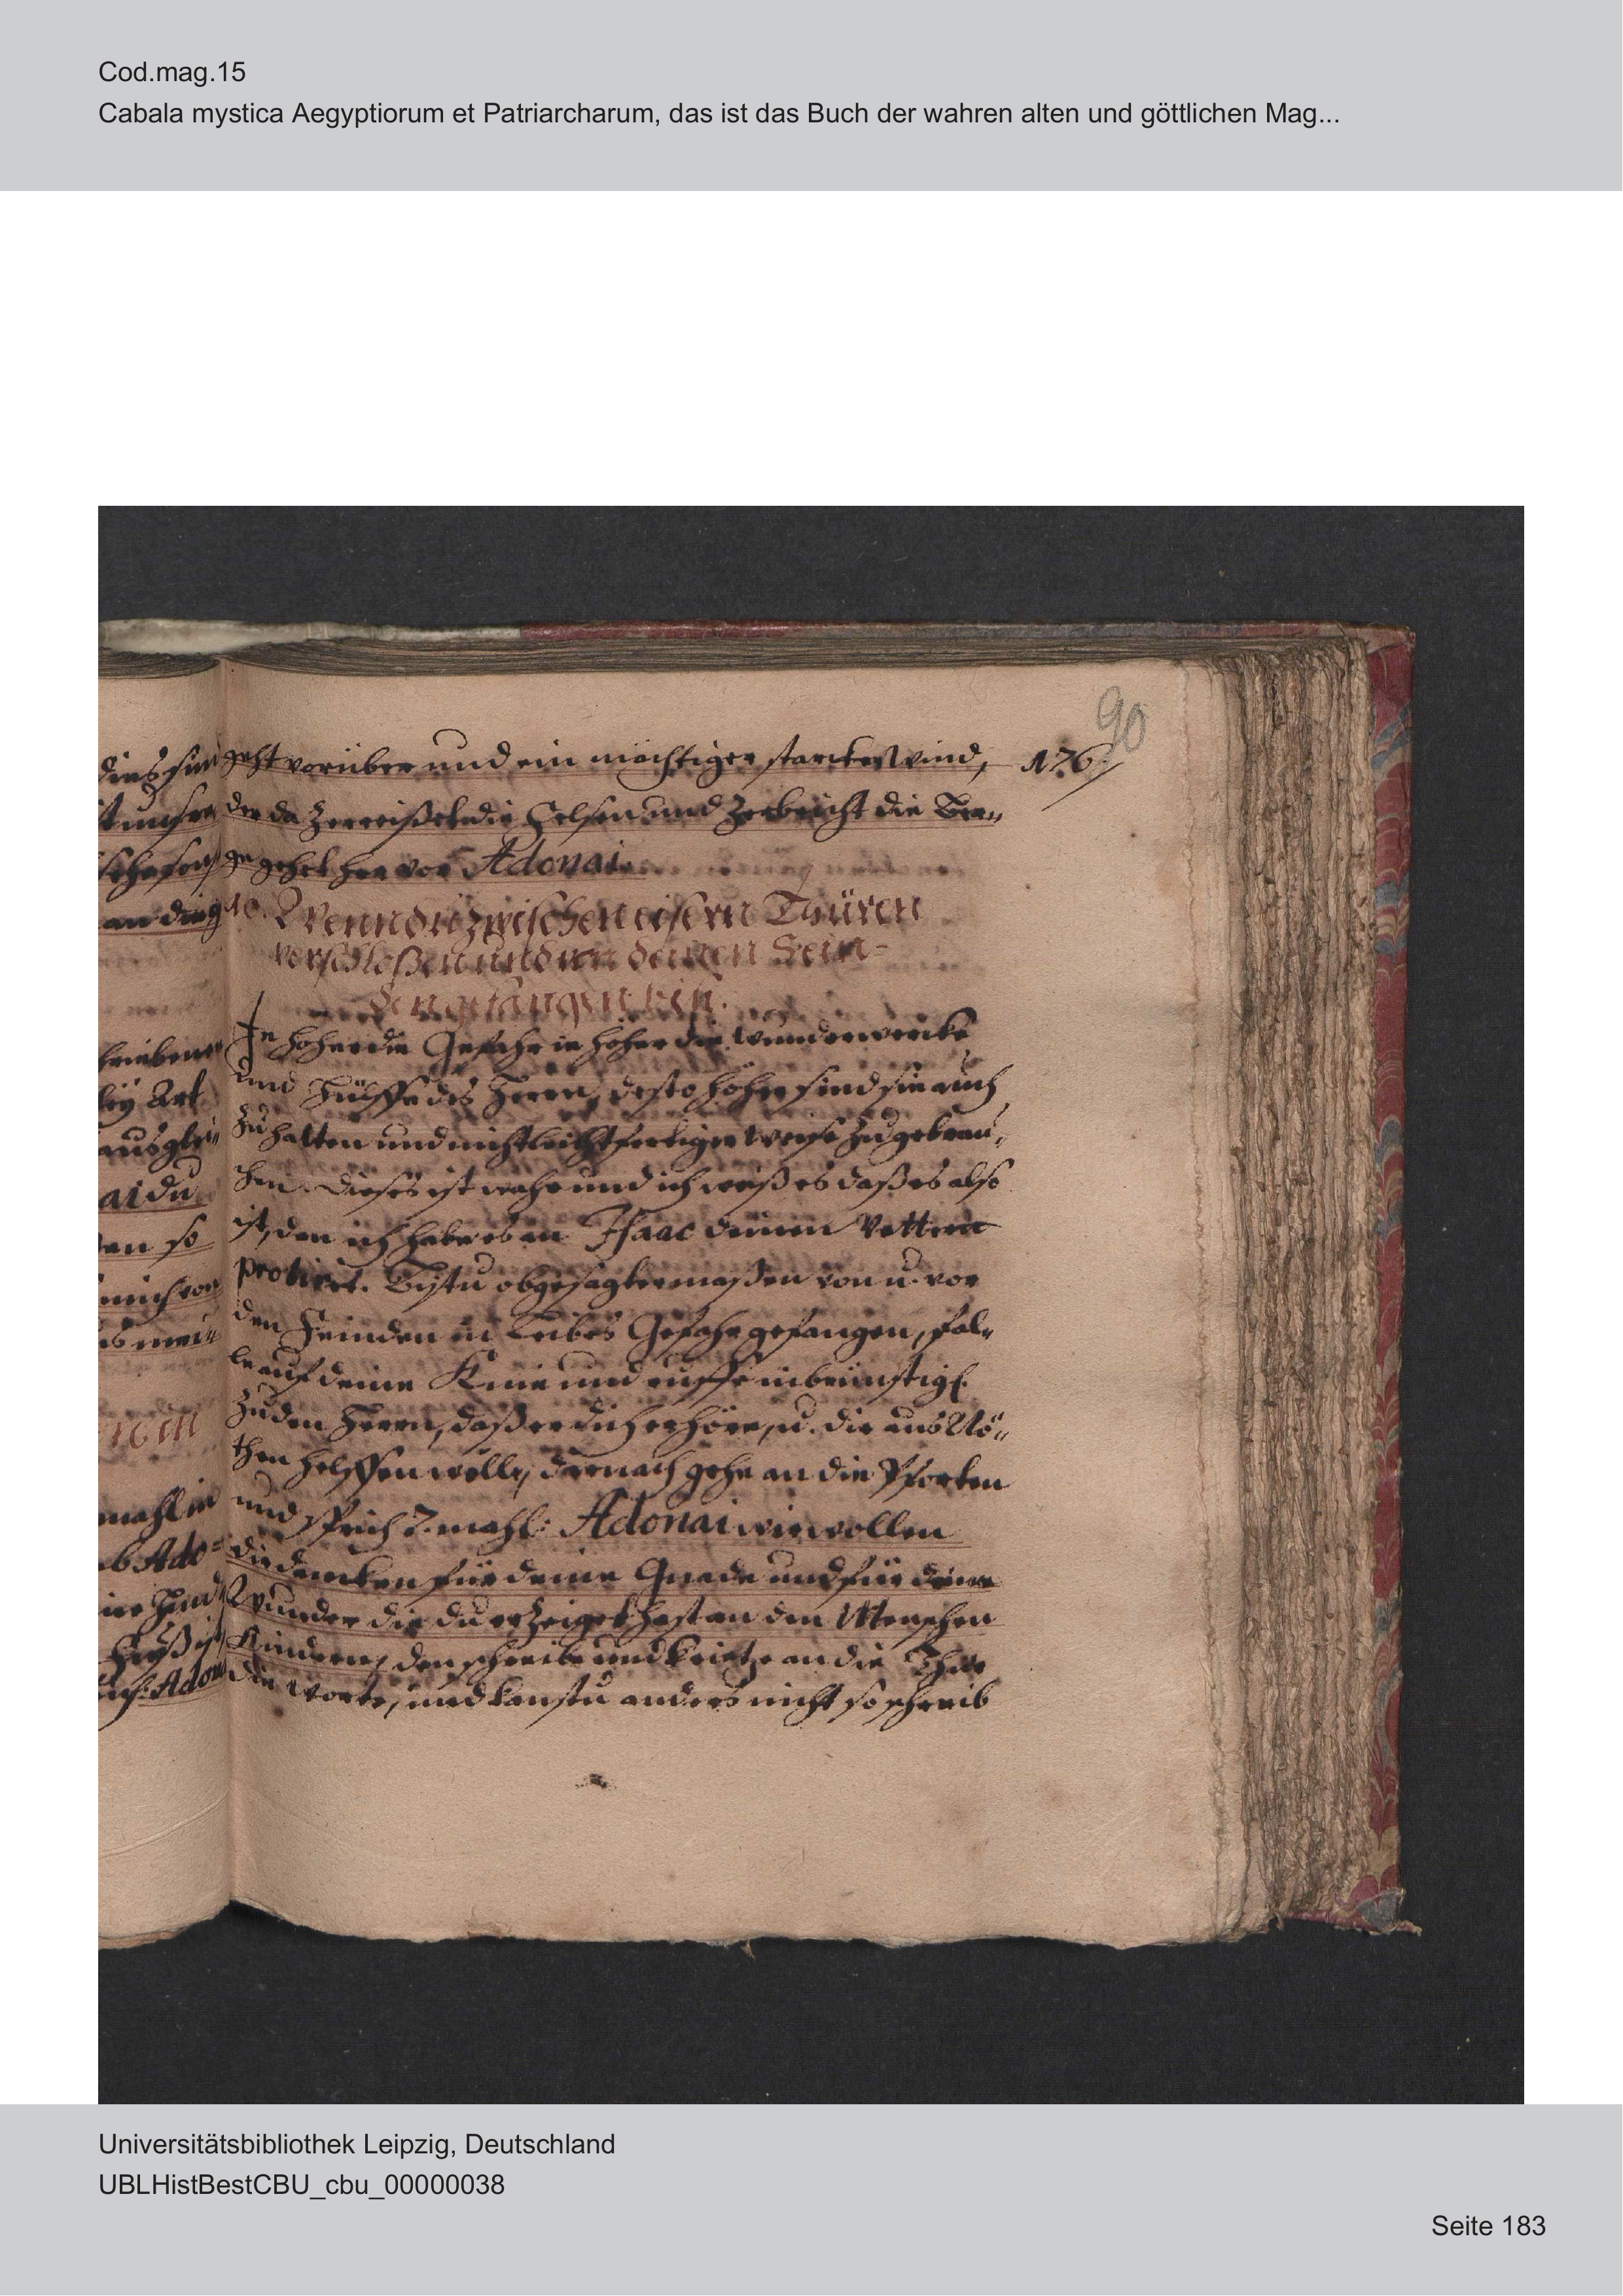 Cod.mag.15
Cabala mystica Aegyptiorum et Patriarcharum, das ist das Buch der wahren alten und göttlichen Mag...
90
176
geht vorüber und ein mächtiger starcker Wind,
der da zerreißet die Felsen und zerbricht die Ber„
ge gehet her vor Adonai.
10. Wenn du zwischen eisern Thüren
verschloßen und von deinen Fein=
den gefangen bist.
Je höher die Gefahr je höher die wunderwercke
und Hülffe des Herrn, desto höher sind sie auch
zu halten und nicht leichtfertiger weise zu gebrau„
chen. dieses ist wahr und ich weiß es daß es also
ist, den ich habe es an Isaac deinen Vettern
probiret. Bistu obgesagter maßen von u. vor
den Feinden in Leibes Gefahr gefangen, fal„
le auf deine Knie und ruffe inbrünstigl.
zu den Herrn, daß er dich erhöre, u. dir aus Nö„
then helffen wolle, darnach gehe an die Pforten
und sprich 7. mahl: Adonai wir wollen
dir dancken für deine Gnade und für deine
Wunder die du erzeiget hast an den Menschen
Kindern, den schreibe und kritze an die Thür
die Worte, und kanstu anders nicht so schreib
ai du
en so
mahl in
Ado=
Universitätsbibliothek Leipzig, Deutschland
UBLHistBestCBU_cbu_00000038
Seite 183